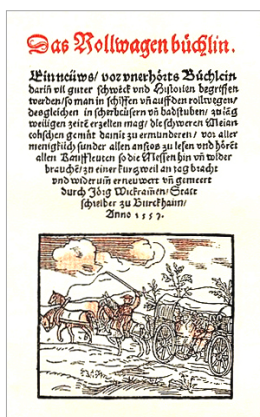 Das Rollwagen büchlin.
Ein neüws/ vor vnerhörts Büchlein
darin̄ vil guter schwenck vnd Historien begriffen
werden/ so man in schiffen vn̄ auff den rollwegen/
desgleichen in scherheüsern vn̄ badstuben/ zu läg
weiligen zeitē erzellen mag/ die schweren Melan
colischen gemüt damit zu ermünderen/ vor aller
menigklich sunder allen anstos zu lesen vnd hören
allen Kauffleüten so die Messen hin vn̄ wider
brauchē/ zu einer kurtzweil an tag bracht
vnd widerum̄ erneuwert vn̄ gemeert
durch Jörg Wickrammen/ Statt
schreiber zu Burckhaim/
Anno 1557.